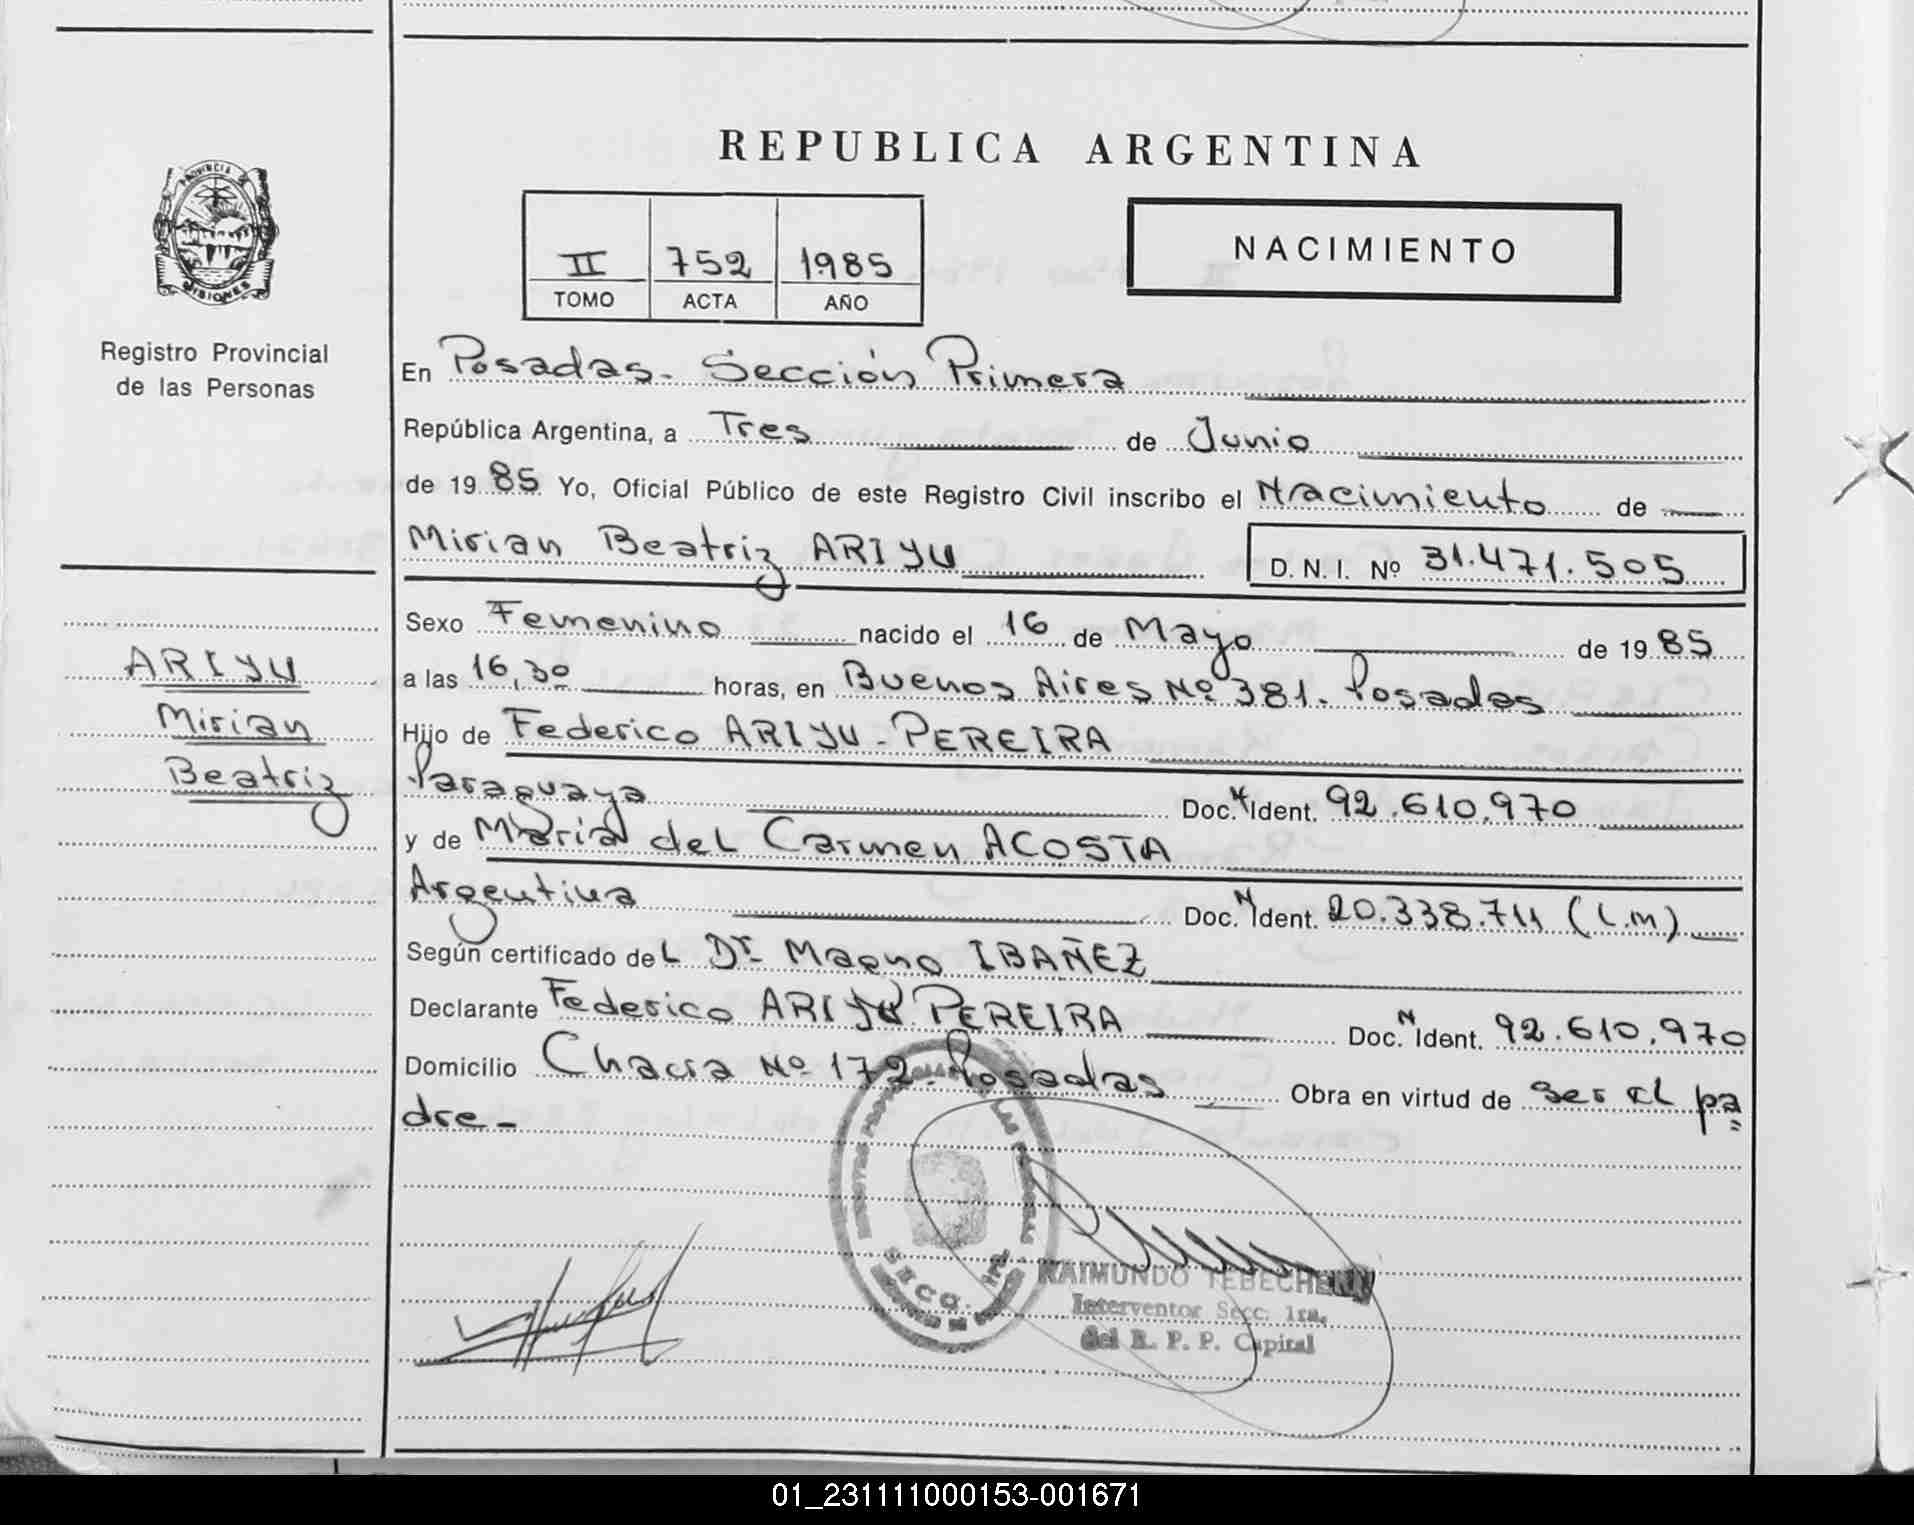 REPUBLICA ARGENTINA
PROVINCIA DE
MISIONES
Registro Provincial
de las Personas
II 752 1985
TOMO ACTA AÑO
NACIMIENTO
En Posadas. Sección Primera
República Argentina, a Tres de Junio
de 1985 Yo, Oficial Público de este Registro Civil inscribo el Nacimiento de
Mirian Beatriz ARIYU D.N.I. Nº 31.471.505
Sexo Femenino nacido el 16 de Mayo de 1985
a las 16,30 horas, en Buenos Aires Nº 381. Posadas
Hijo de Federico ARIYU - PEREIRA
Paraguaya Doc. N Ident. 92.610.970
y de Maria del Carmen ACOSTA
Argentina Doc. N Ident. 20.338.711 (L.M)
Según certificado del Dr. Magno IBAÑEZ
Declarante Federico ARIYU PEREIRA Doc. N Ident. 92.610.970
Domicilio Chacra Nº 172. Posadas Obra en virtud de ser el pa
dre -
ARIYU
Mirian
Beatriz
SECC. 1ra.
RAIMUNDO
Interventor Secc. 1ra.
del R. P. P. Capital
01_231111000153-001671